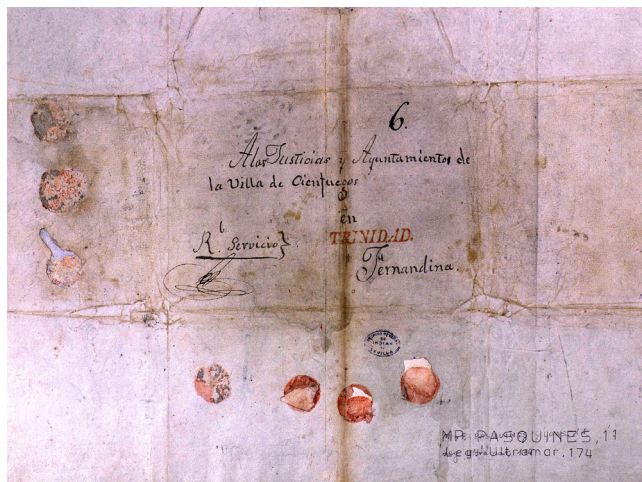 6.
A las Justicias y Ayuntamientos de
la Villa de Cienfuegos
en
R.l Servicio}
TRINIDAD.
Fernandina.
ARCHIVO GENERAL
DE
INDIAS
SEVILLA
MP, PASQUINES, 11
Ultramar, 174